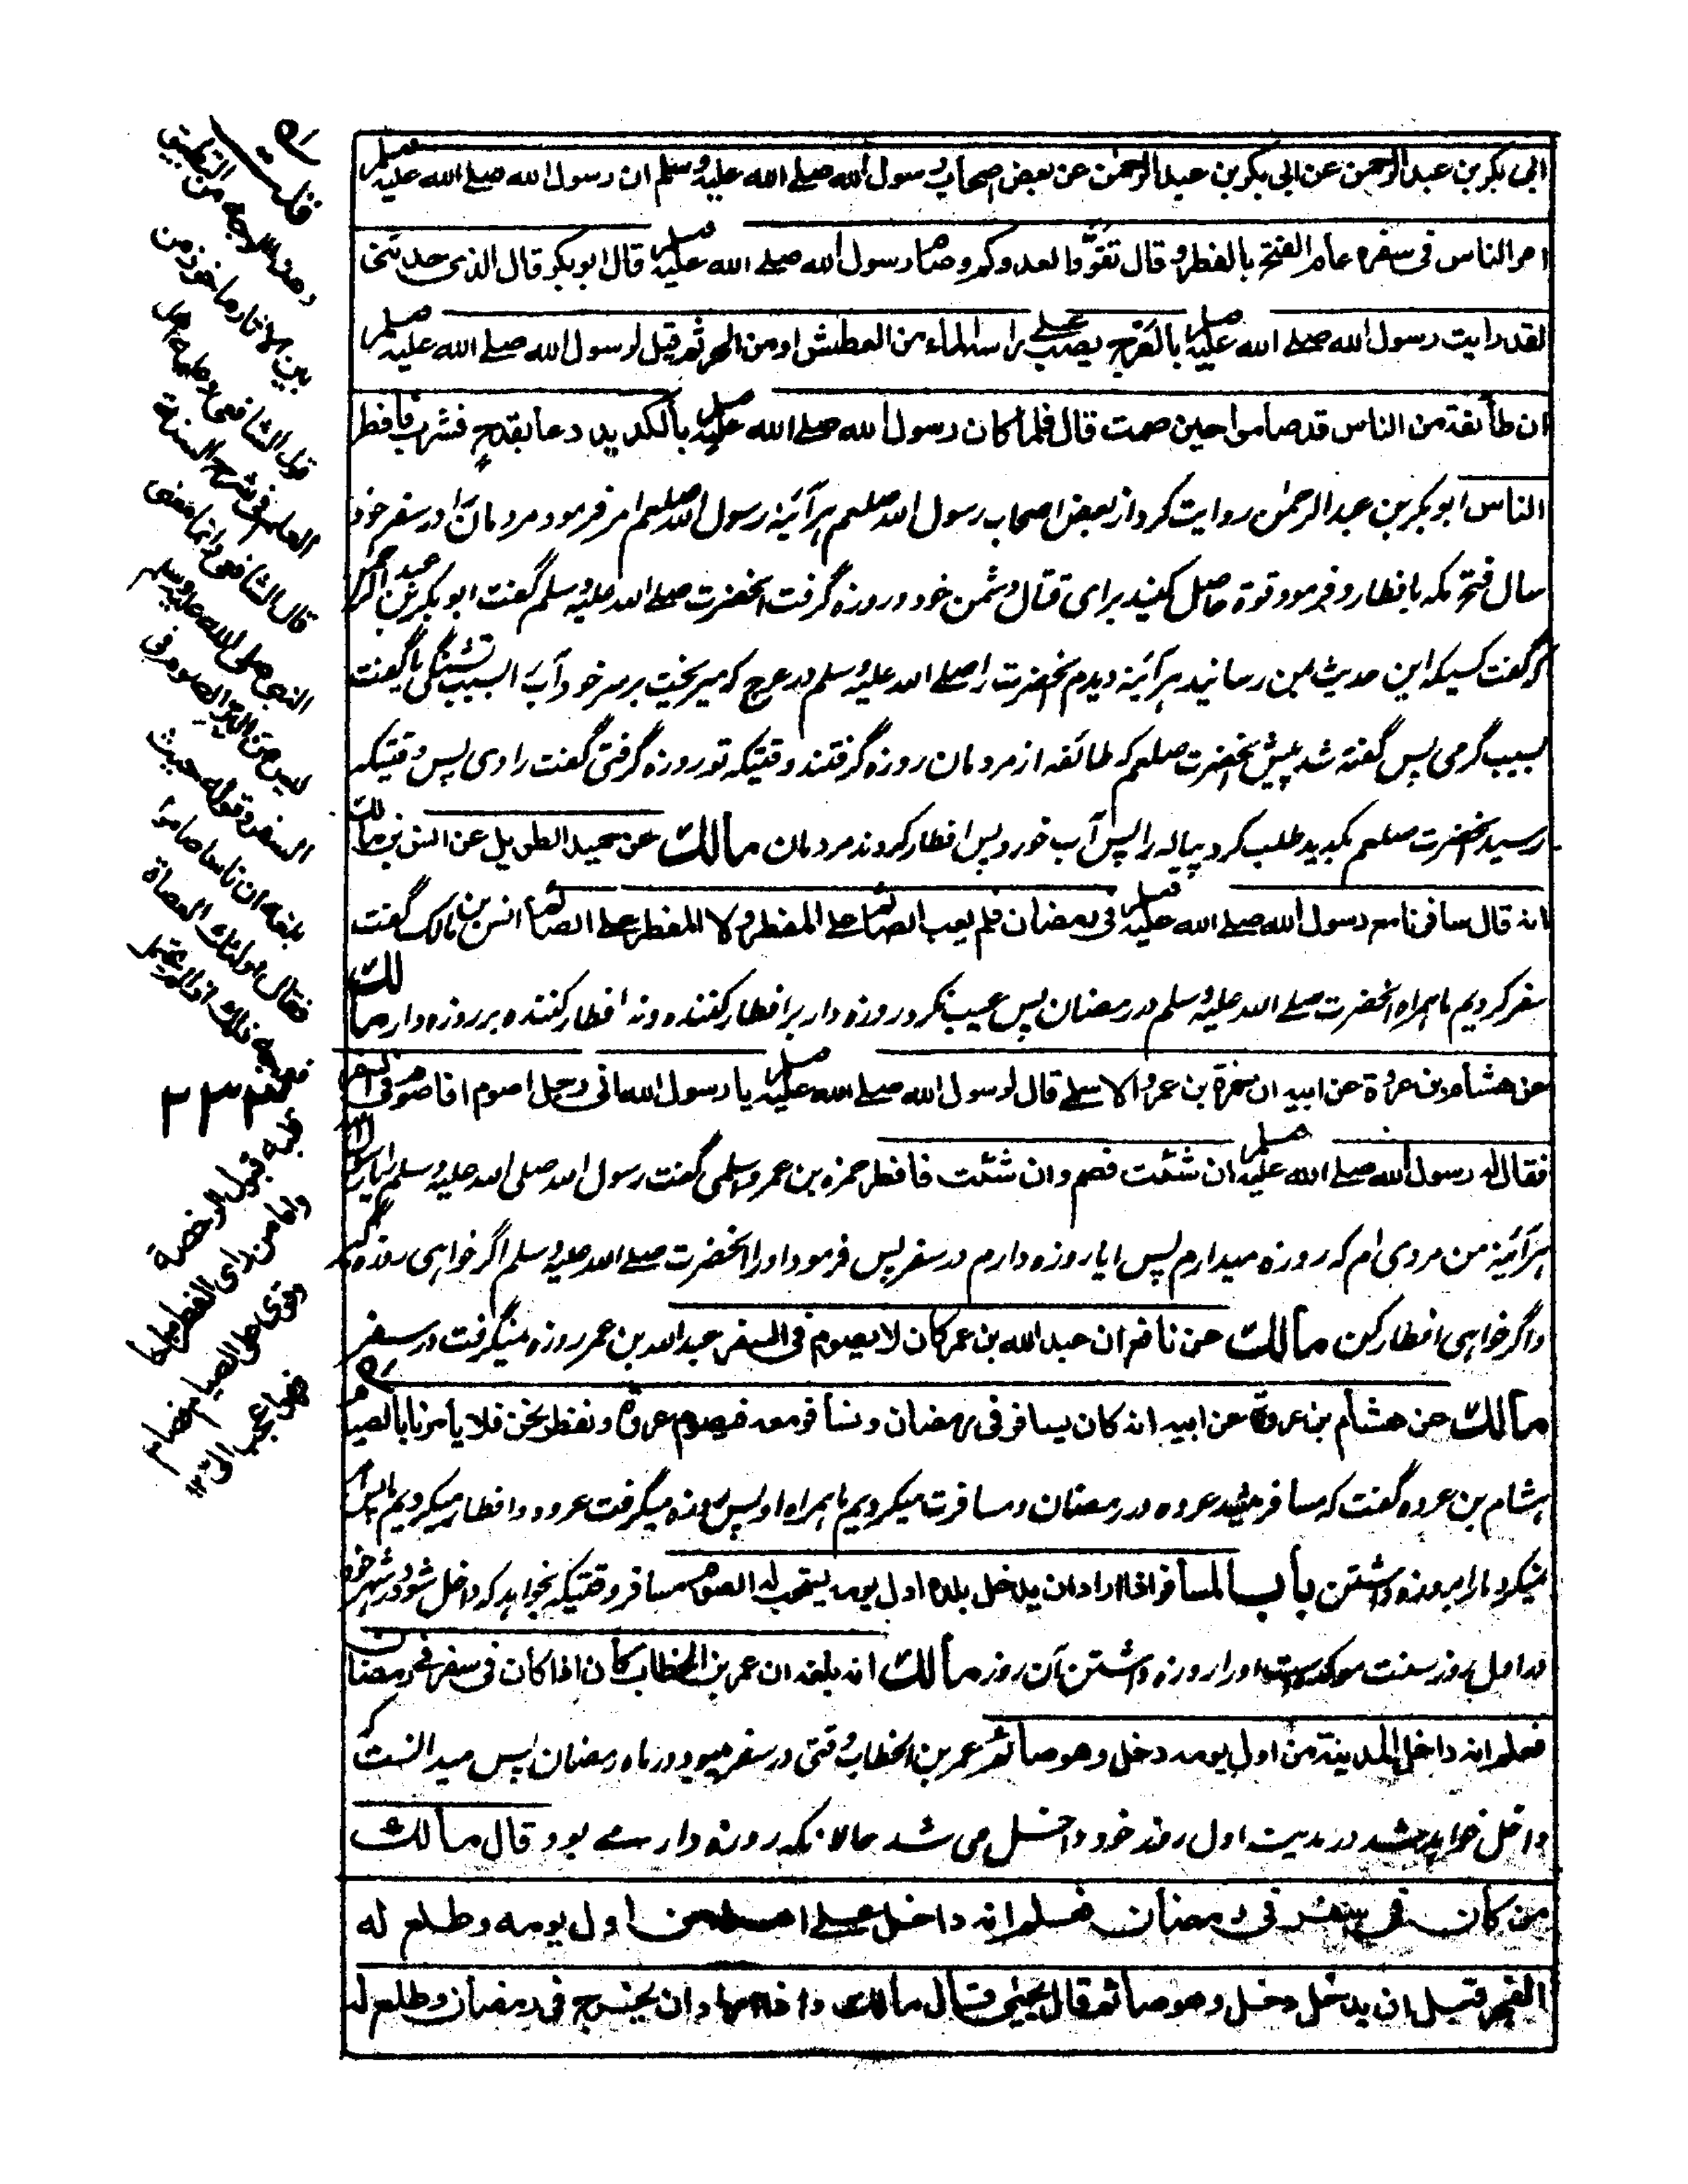 ابی بکر بن عبد الرحمن عن ابی بکر بن عبد الرحمن عن بعض اصحاب رسول الله صلے الله علیه وسلم ان رسول الله صلے الله علیه وسلم
امر الناس فی سفره عام الفتح بالفطر و قال تقووا لعدوکم وصام رسول الله صلے الله علیه وسلم قال ابو بکر قال الذی حدثنی
لقد رایت رسول الله صلے الله علیه وسلم بالعرج یصب علے راسه الماء من العطش او من الحر ثم قیل لرسول الله صلے الله علیه وسلم
ان طائفة من الناس قد صاموا حین صمت قال فلما کان رسول الله صلے الله علیه وسلم بالکدید دعا بقدح فشرب فافطر
الناس ابو بکر بن عبد الرحمن روایت کرد از بعض اصحاب رسول الله صلعم هرآئینه رسول الله صلعم امر فرمود مردمان را در سفر خود
سال فتح مکه بافطار و فرمود قوة حاصل کنید برای قتال دشمن خود و روزه گرفت آنحضرت صلے الله علیه وسلم گفت ابو بکر بن عبد الرحمن
که گفت کسیکه این حدیث بمن رسانید هرآئینه دیدم آنحضرت را صلے الله علیه وسلم در عرج که میریخت بر سر خود آب بسبب تشنگی یا گفت
بسبب گرمی پس گفته شد پیش آنحضرت صلعم که طائفه از مردمان روزه گرفتند وقتیکه تو روزه گرفتی گفت راوی پس وقتیکه
رسید آنحضرت صلعم بکدید طلب کرد پیاله را پس آب خورد پس افطار کردند مردمان مالك عن حمید الطویل عن انس بن مالك
انه قال سافرنا مع رسول الله صلے الله علیه وسلم فی رمضان فلم یعب الصائم علے المفطر ولا المفطر علے الصائم انس بن مالک گفت
سفر کردیم ما همراه آنحضرت صلے الله علیه وسلم در رمضان پس عیب نکرد روزه دار بر افطار کننده و نه افطار کننده بر روزه دار مالك
عن هشام بن عروة عن ابیه ان حمزة بن عمرو الاسلمے قال لرسول الله صلے الله علیه وسلم یا رسول الله انی رجل اصوم افاصوم فی السفر
فقال له رسول الله صلے الله علیه وسلم ان شئت فصم و ان شئت فافطر حمزه بن عمرو اسلمی گفت رسول الله صلی الله علیه وسلم را یا رسول الله
هرآئینه من مردی ام که روزه میدارم پس ایا روزه دارم در سفر پس فرمود او را آنحضرت صلے الله علیه وسلم اگر خواهی روزه گیر
و اگر خواهی افطار کن مالك عن نافع ان عبد الله بن عمر کان لا یصوم فی السفر عبد الله بن عمر روزه نمیگرفت در سفر
مالك عن هشام بن عروة عن ابیه انه کان یسافر فی رمضان و نسافر معه فیصوم عروة و نفطر نحن فلا یامرنا بالصیام
هشام بن عروه گفت که مسافر میشد عروه در رمضان و مسافرت میکردیم ما همراه او پس روزه میگرفت عروه و افطار میکردیم ما پس امر
نمیکرد ما را بروزه داشتن باب المسافر اذا اراد ان یدخل بلده اول یومه یستحب له الصوم مسافر وقتیکه بخواهد که داخل شود در شهر خود
در اول روز سنت موکده است او را روزه داشتن آن روز مالك انه بلغه ان عمر بن الخطاب کان اذا کان فی سفر فی رمضان
فعلم انه داخل المدینة من اول یومه دخل وهو صائم عمر بن الخطاب وقتی در سفر میبود در ماه رمضان پس میدانست که
داخل خواهد شد در مدینه اول روز خود داخل می شد حالانکه روزه دار مے بود قال مالك
من کان فی سفر فی رمضان فعلم انه داخل علے اهله من اول یومه وطلع له
الفجر قبل ان یدخل دخل وهو صائم قال یحیی قال مالك و اذا اراد ان یخرج فی رمضان وطلع له
قلت
وهذا الاوجه من التطبیق
بین الاثار ماخوذ من
قول الشافعی وعلیه اهل
العلم فی شرح السنة
قال الشافعی وانما معنی
النبی صلی الله علیه وسلم
لیس من البر الصوم فی
السفر وقوله حیث
بلغه ان ناسا صاموا
فقال اولئك العصاة
فوجه ذلك اذا لم یحتمل
قلبه قبول الرخصة
واما من رای الفطر مباحا
وقوی علی الصیام فصام
فهو اعجب الی ١٢